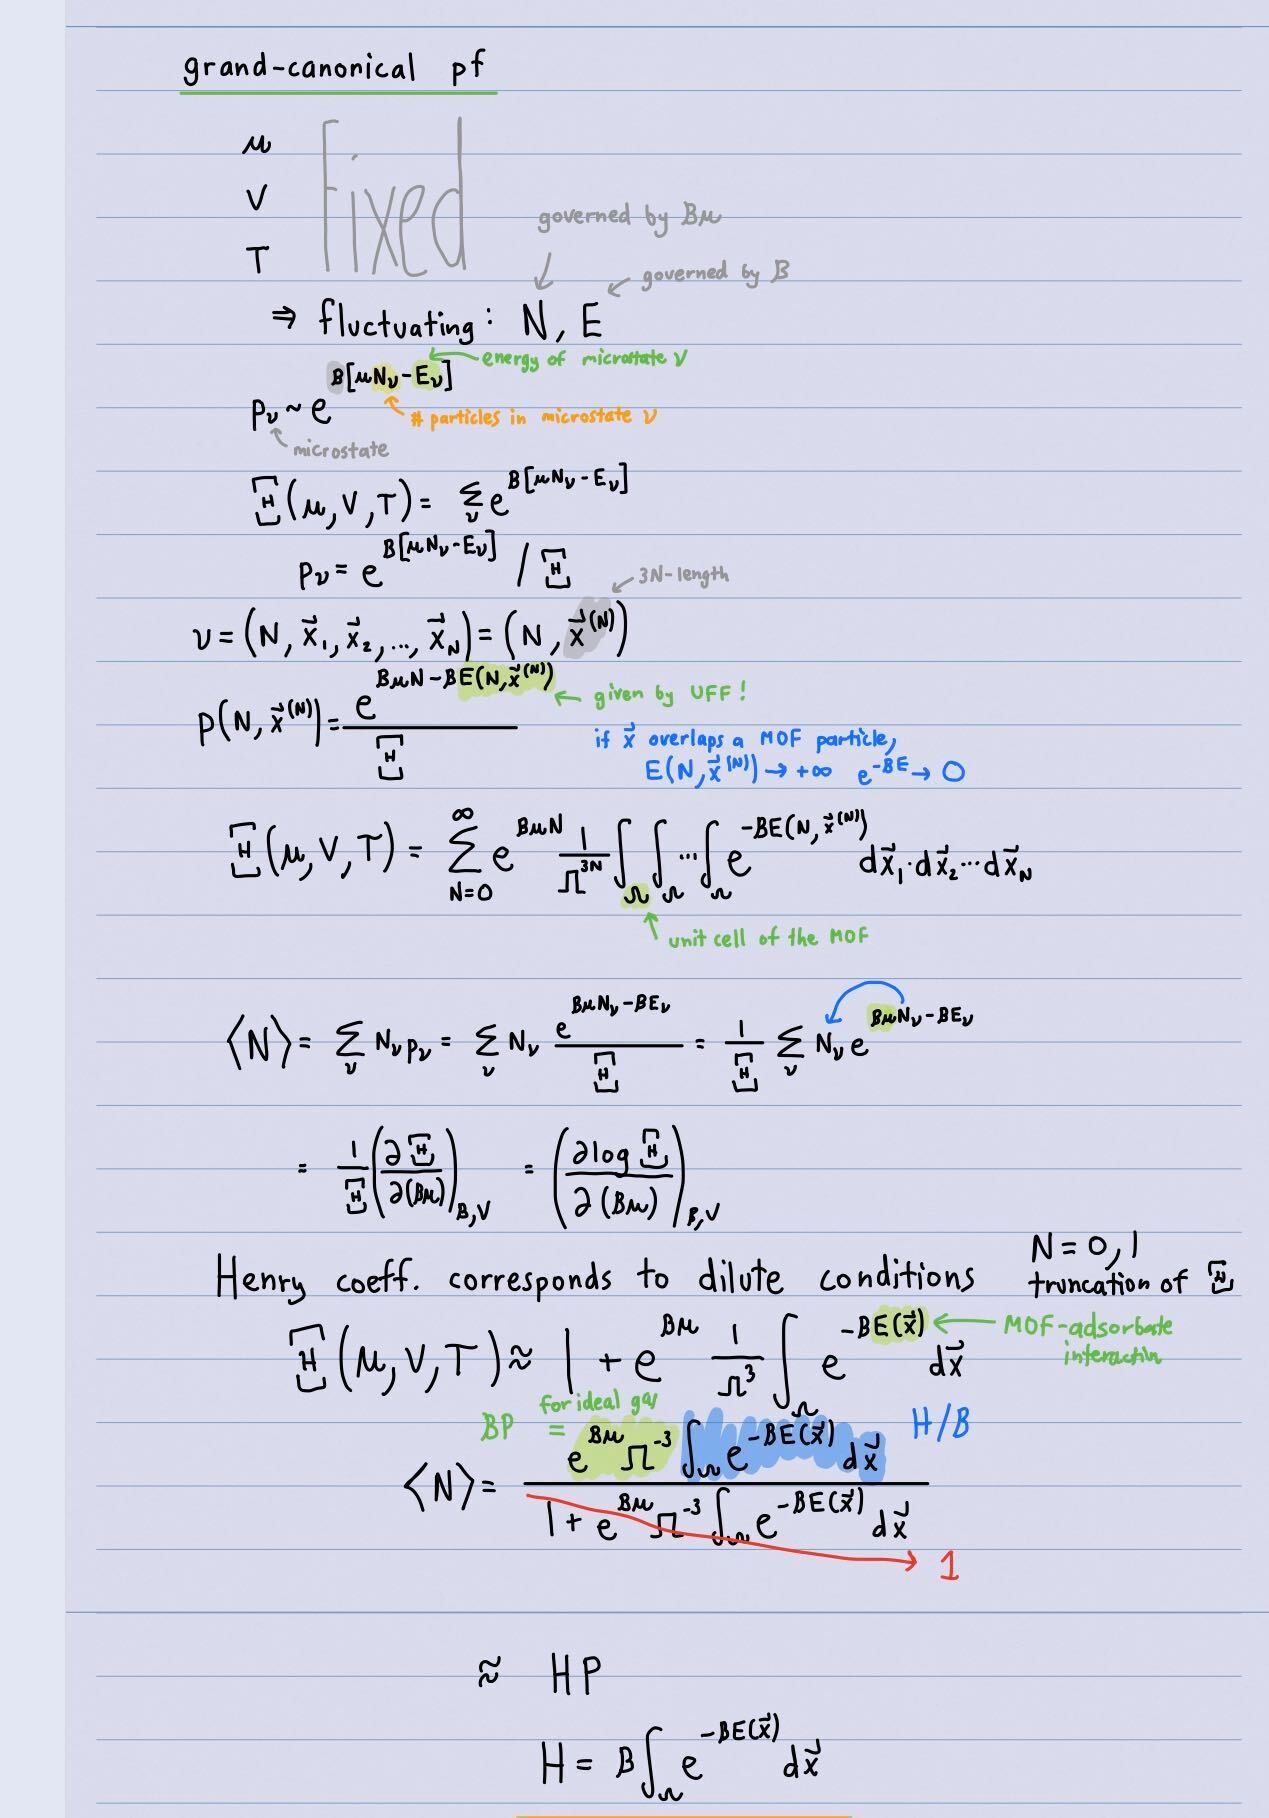 grand-canonical pf
μ
V
T
Fixed
governed by βμ
governed by β
⇒ fluctuating: N, E
energy of microstate ν
p_ν ~ e^{β[μN_ν - E_ν]}
# particles in microstate ν
microstate
Ξ(μ, V, T) = Σ_ν e^{β[μN_ν - E_ν]}
p_ν = e^{β[μN_ν - E_ν]} / Ξ
3N-length
ν = (N, x⃗_1, x⃗_2, ..., x⃗_N) = (N, x⃗^{(N)})
p(N, x⃗^{(N)}) = e^{βμN - βE(N, x⃗^{(N)})} / Ξ
given by UFF!
if x⃗ overlaps a MOF particle,
E(N, x⃗^{(N)}) → +∞ e^{-βE} → 0
Ξ(μ, V, T) = Σ_{N=0}^{∞} e^{βμN} 1/Λ^{3N} ∫_Ω ∫_Ω ... ∫_Ω e^{-βE(N, x⃗^{(N)})} dx⃗_1 · dx⃗_2 ... dx⃗_N
unit cell of the MOF
⟨N⟩ = Σ_ν N_ν p_ν = Σ_ν N_ν e^{βμN_ν - βE_ν} / Ξ = 1/Ξ Σ_ν N_ν e^{βμN_ν - βE_ν}
= 1/Ξ (∂Ξ / ∂(βμ))_{β,V} = (∂log Ξ / ∂(βμ))_{β,V}
Henry coeff. corresponds to dilute conditions
N = 0, 1
truncation of Ξ
Ξ(μ, V, T) ≈ 1 + e^{βμ} 1/Λ^3 ∫_Ω e^{-βE(x⃗)} dx⃗
MOF-adsorbate
interactin
for ideal gas
βP =
H/β
⟨N⟩ = e^{βμ} Λ^{-3} ∫_Ω e^{-βE(x⃗)} dx⃗ / 1 + e^{βμ} Λ^{-3} ∫_Ω e^{-βE(x⃗)} dx⃗
→ 1
≈ HP
H = β ∫_Ω e^{-βE(x⃗)} dx⃗